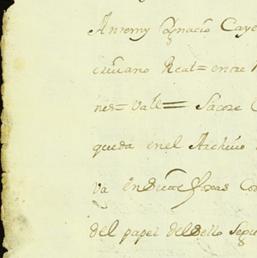 Antemy Ignacio Caye
civano Real = entre
nes = Vall = Sacose
queda en el Archivo
va en diez foxas Con
del papel del sello Segu